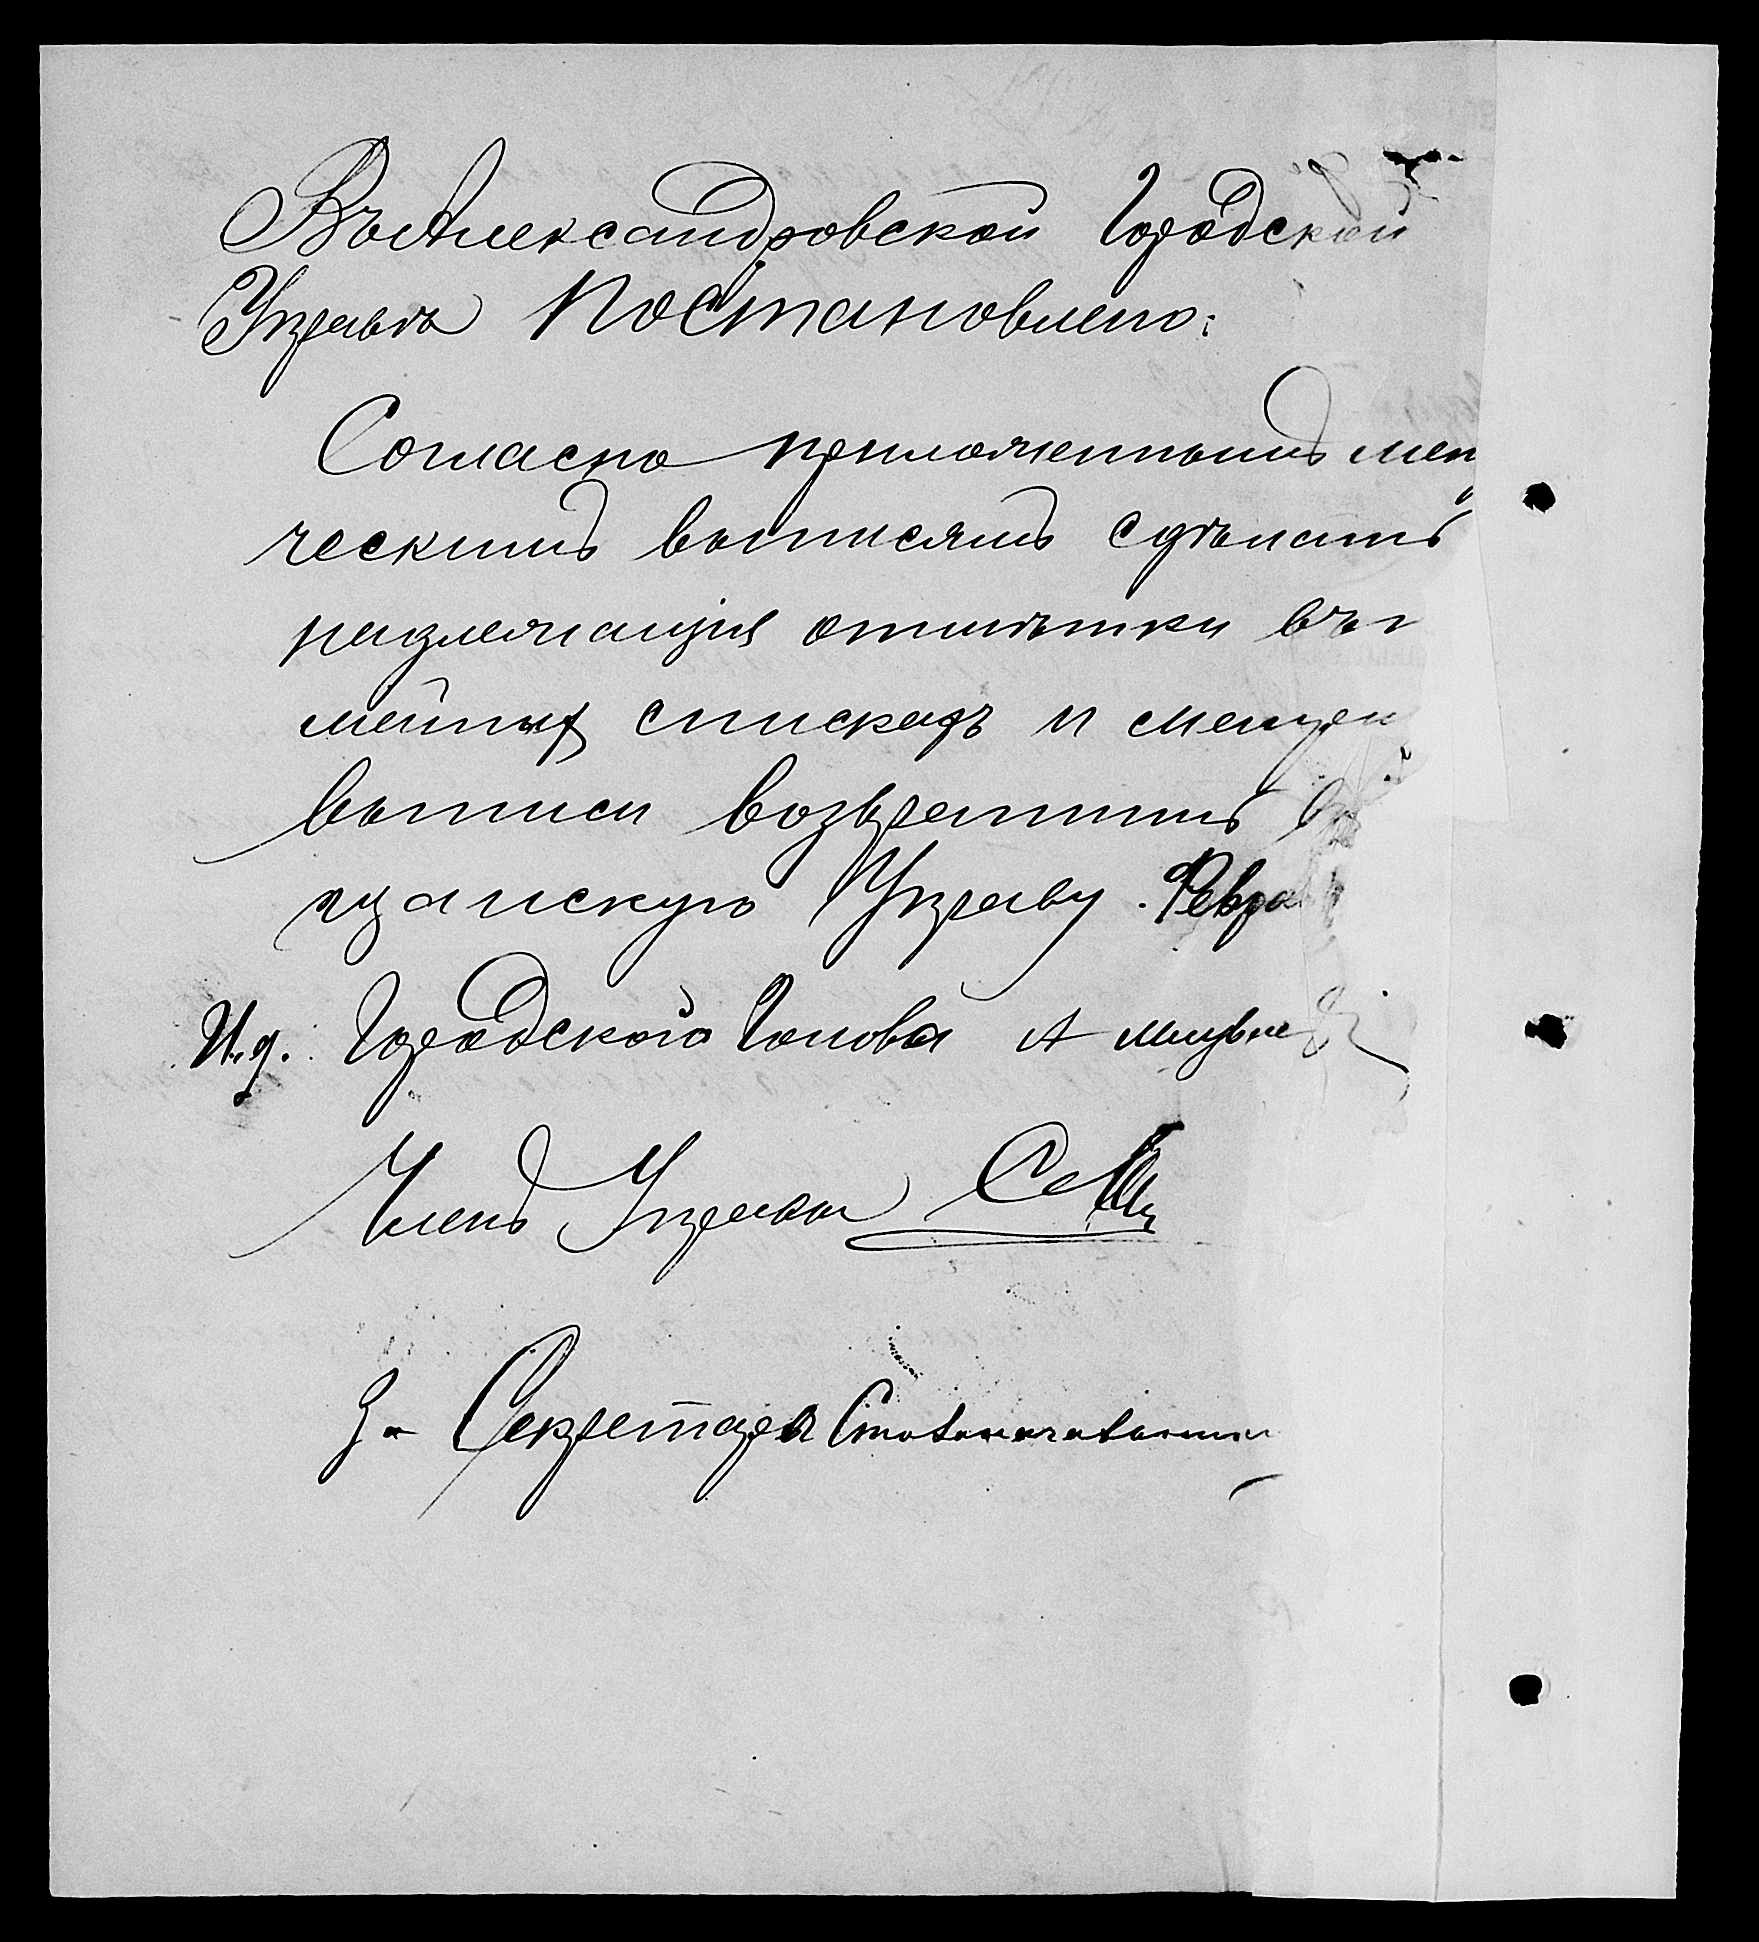 Въ Александровской Городской
Управѣ Постановлено:
Согласно приложеннымъ мет
ческимъ выписямъ сдѣлать
надлежащія отмѣтки въ
мейныхъ спискахъ и
выписи возвратить
щанскую Управу. Февра
И. д. Городского Головы А
Членъ Управы
За Секретаря